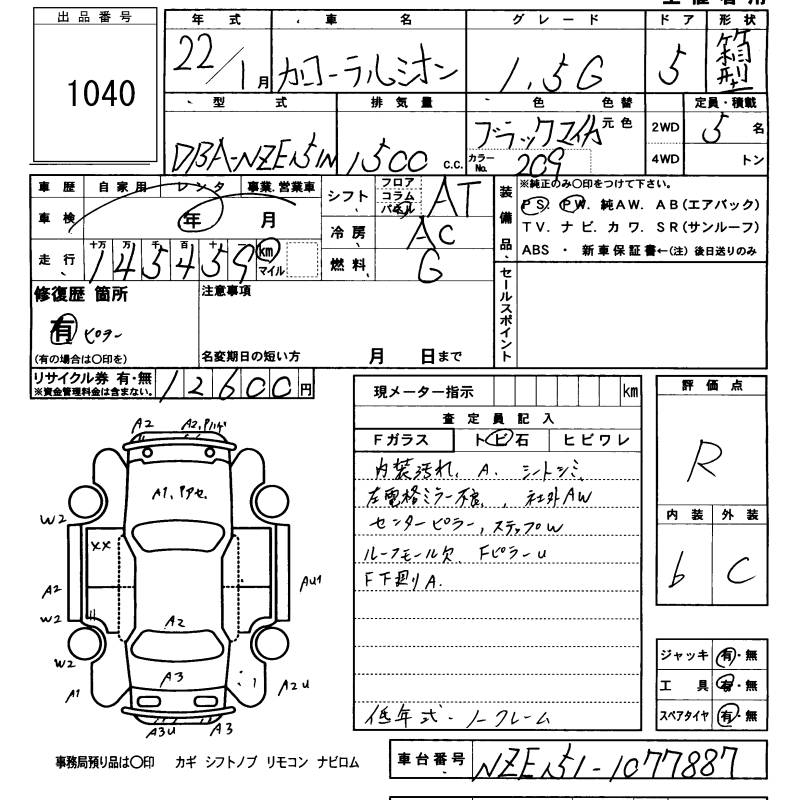 出品番号
1040
年式 車名 グレード ドア 形状
22/1月 カローラルミオン 1.5G 5 箱型
型式 排気量 色 色替 定員・積載
DBA-NZE151N 1500 c.c. ブラックマイカ 元色 2WD 5 名
カラーNo. 209 4WD トン
車歴 自家用 レンタ 事業.営業車
車検 年 月
走行 十万 万 千 百 十 145459 km マイル
シフト フロア コラム パネル AT
冷房 AC
燃料 G
装備品
※純正のみ〇印をつけて下さい。
PS. PW. 純AW. AB(エアバック)
TV. ナビ. カワ. SR(サンルーフ)
ABS ・ 新車保証書←(注) 後日送りのみ
修復歴 箇所
有 ピラー
(有の場合は〇印を)
注意事項
名変期日の短い方 月 日まで
セールスポイント
リサイクル券 有・無 12600円
※資金管理料金は含まない。
現メーター指示 km
査定員記入
Fガラス ト ビ 石 ヒビワレ
内装汚れ、A. シートシミ
左電格ミラー不良、社外AW
センターピラー, ステップW
ルーフモール欠 FピラーU
F下廻りA.
低年式・ノークレーム
評価点
R
内装 外装
b C
ジャッキ 有・無
工具 有・無
スペアタイヤ 有・無
A2 A2,
A1,
W2
XX
A2
W2
W2
A1
AU1
A2
A3
A2U
A3U A3
事務局預り品は〇印 カギ シフトノブ リモコン ナビロム
車台番号 NZE151-1077887